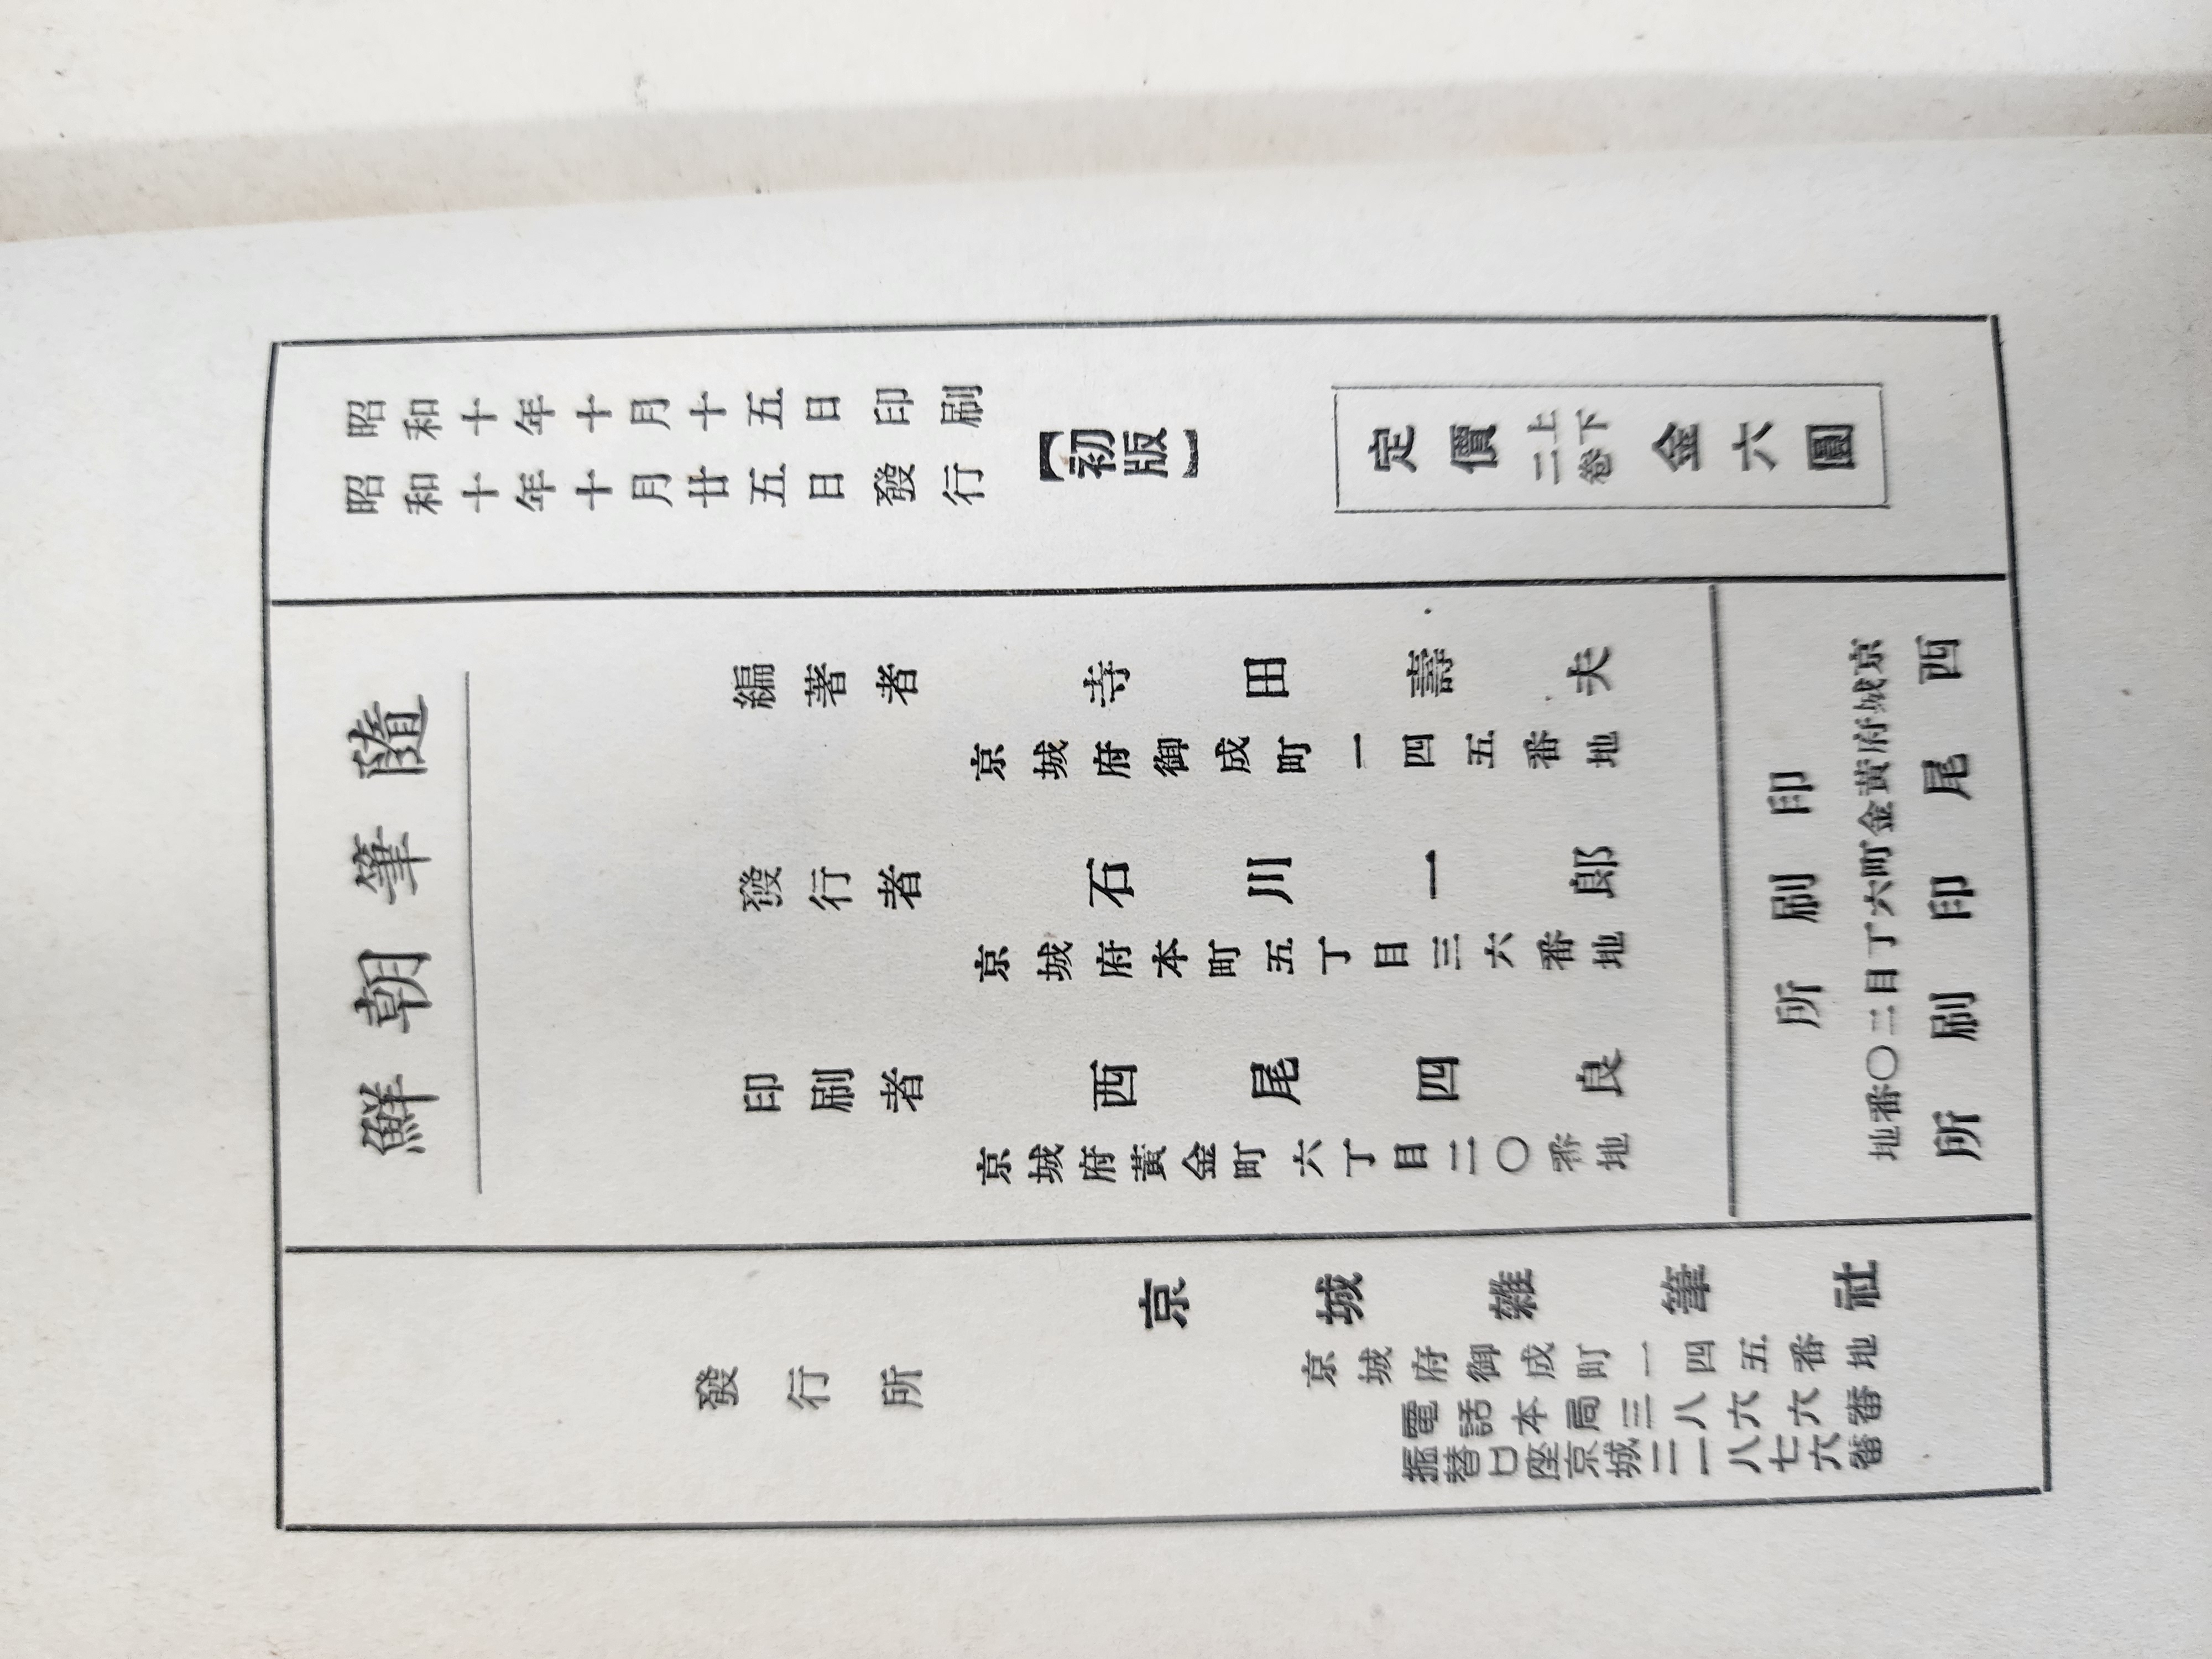 昭和十年十月十五日印刷
昭和十年十月廿五日發行
【初版】
定價上下二卷金六圓
隨筆朝鮮
編著者 寺田壽夫
京城府御成町一四五番地
發行者 石川一郎
京城府本町五丁目三六番地
印刷者 西尾四良
京城府黃金町六丁目二〇番地
印刷所
京城府黃金町六丁目二〇番地
西尾印刷所
發行所 京城雜筆社
京城府御成町一四五番地
電話本局三八六六番
振替口座京城二一八七六番